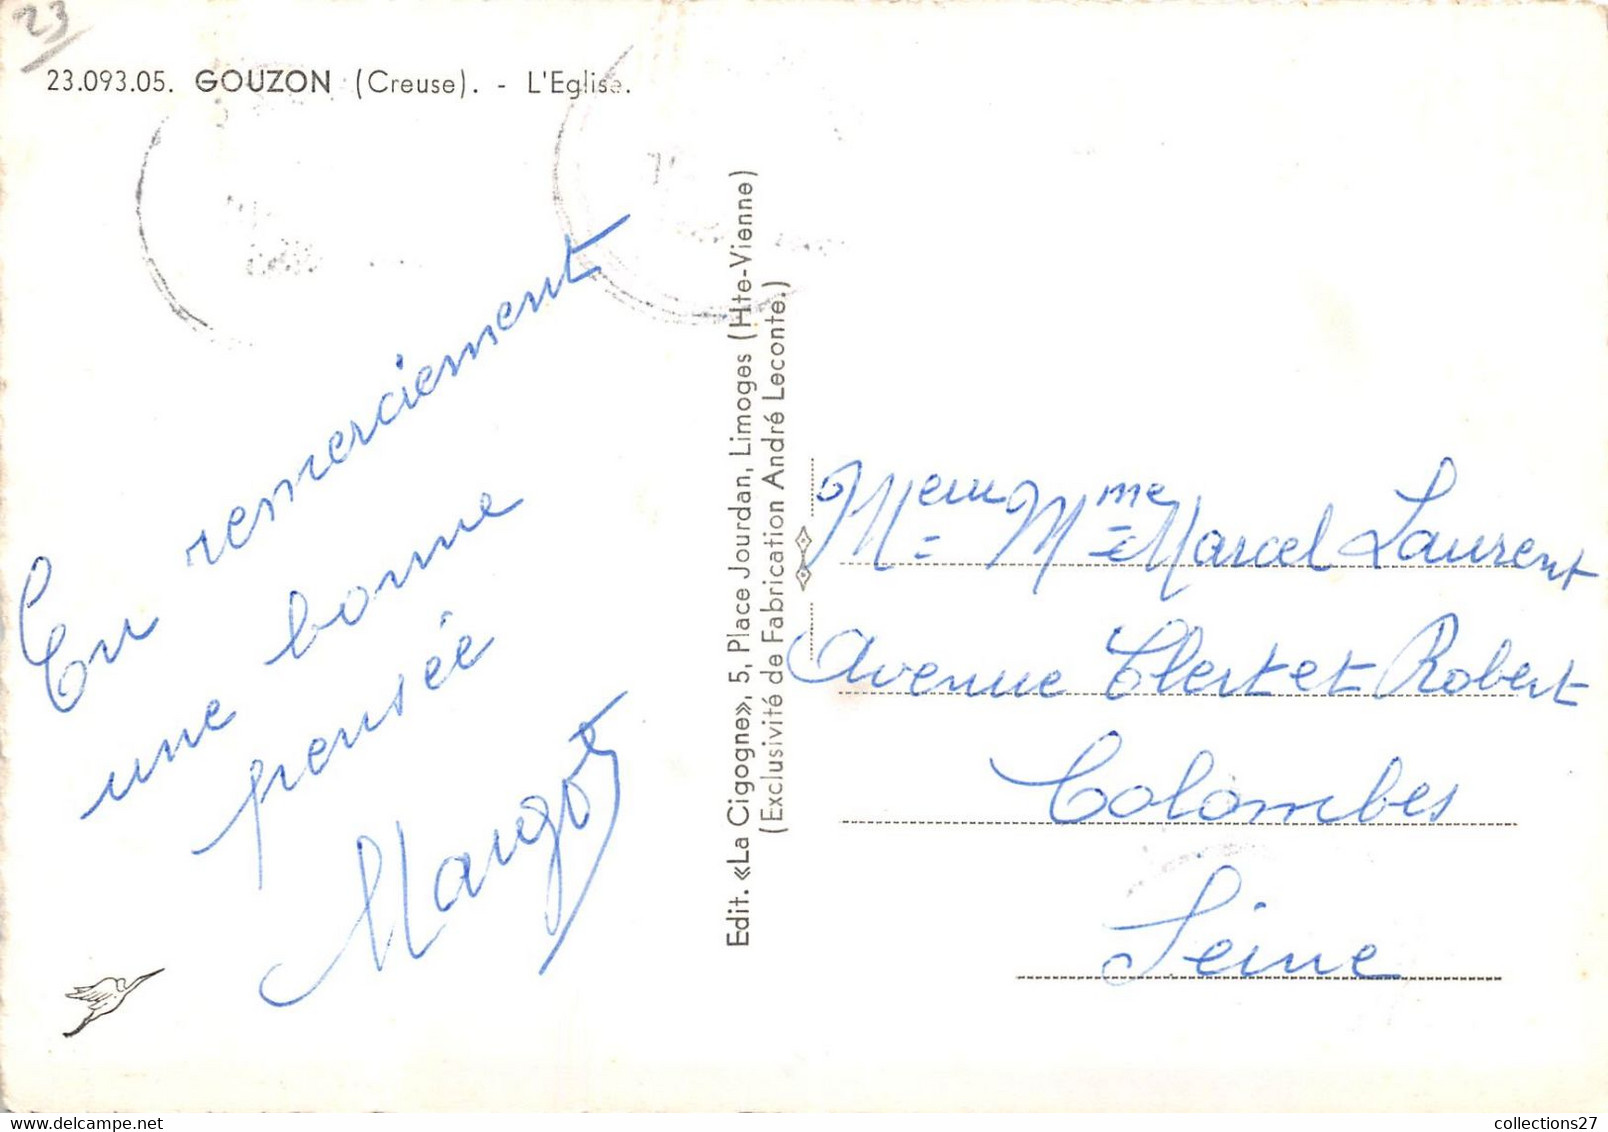 23
23.093.05. GOUZON (Creuse). - L'Eglise.
En remerciement
une bonne
pensée
Margot
Edit. «La Cigogne», 5, Place Jourdan, Limoges (Hte-Vienne)
(Exclusivité de Fabrication André Leconte.)
Mme Marcel Laurent
Avenue Clert et Robert
Colombes
Seine
collections27